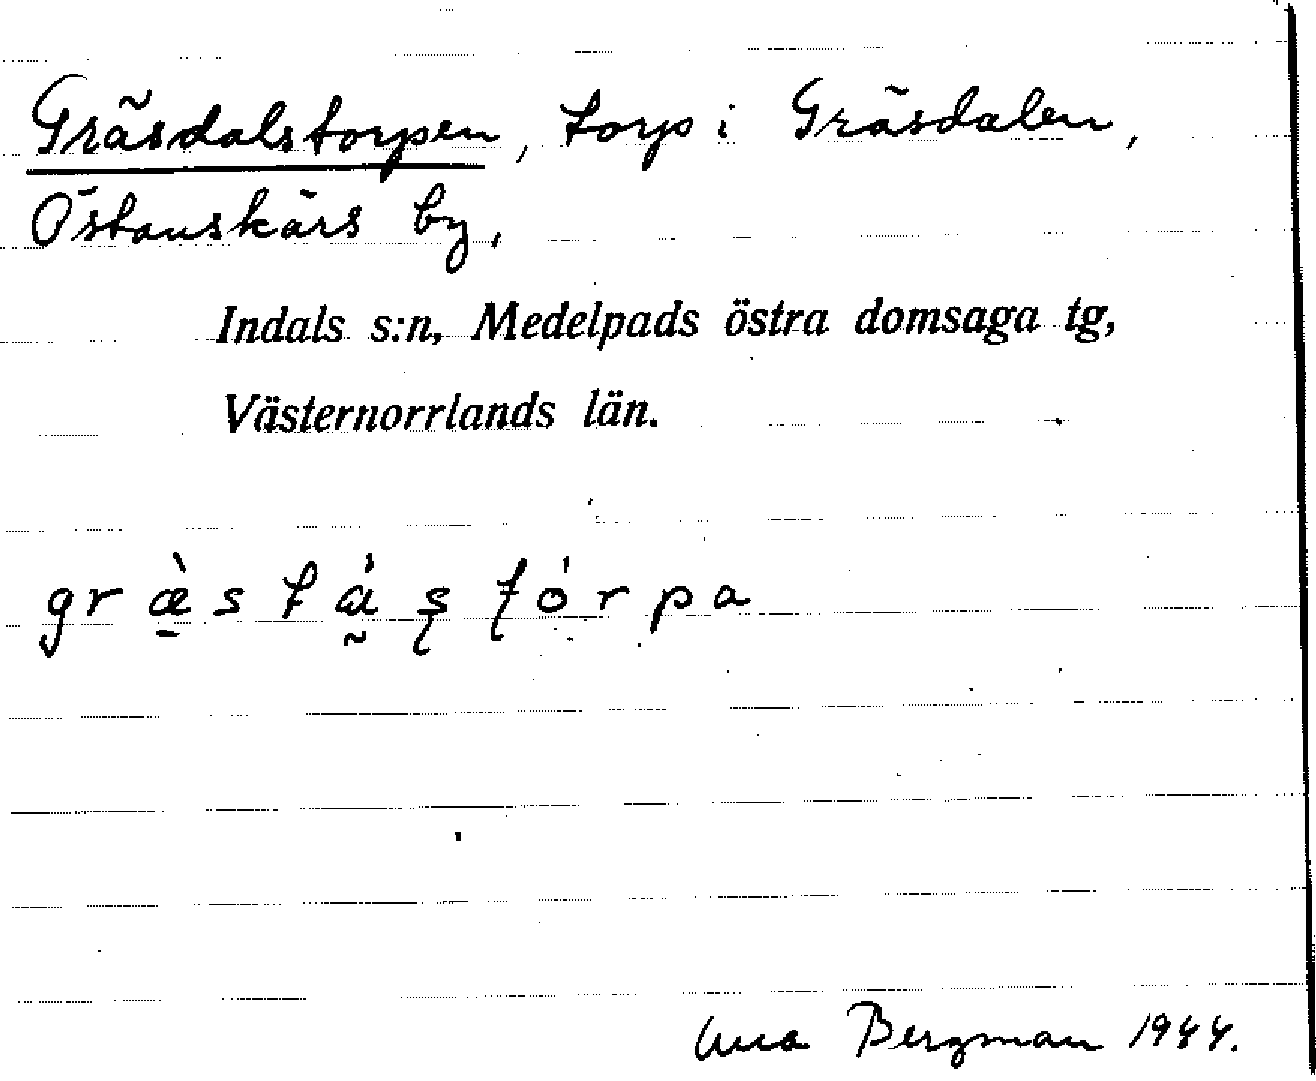 Gräsdalstorpen, torp i Gräsdalen,
Östanskärs by,
Indals s:n, Medelpads östra domsaga tg,
Västernorrlands län.
græ̠̀stá̰ʂʈórpa
Bergman 1944.